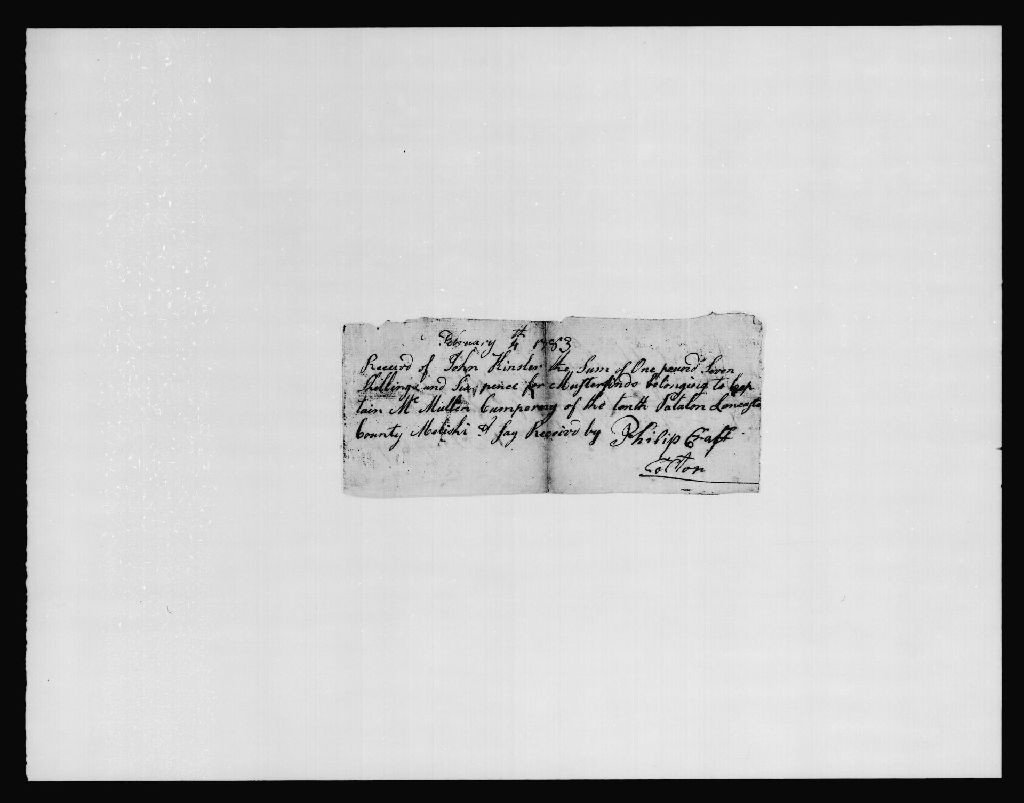 February 4th 1783
Received of John Kinsler the Sum of One pound Seven
Shillings and Six pence for Musterfinds belonging to Cap
tain Mc Mullen Cumpereny of the tenth Patalon Loncaster
County Melishi I say Receird by Philip Craft
Colctor